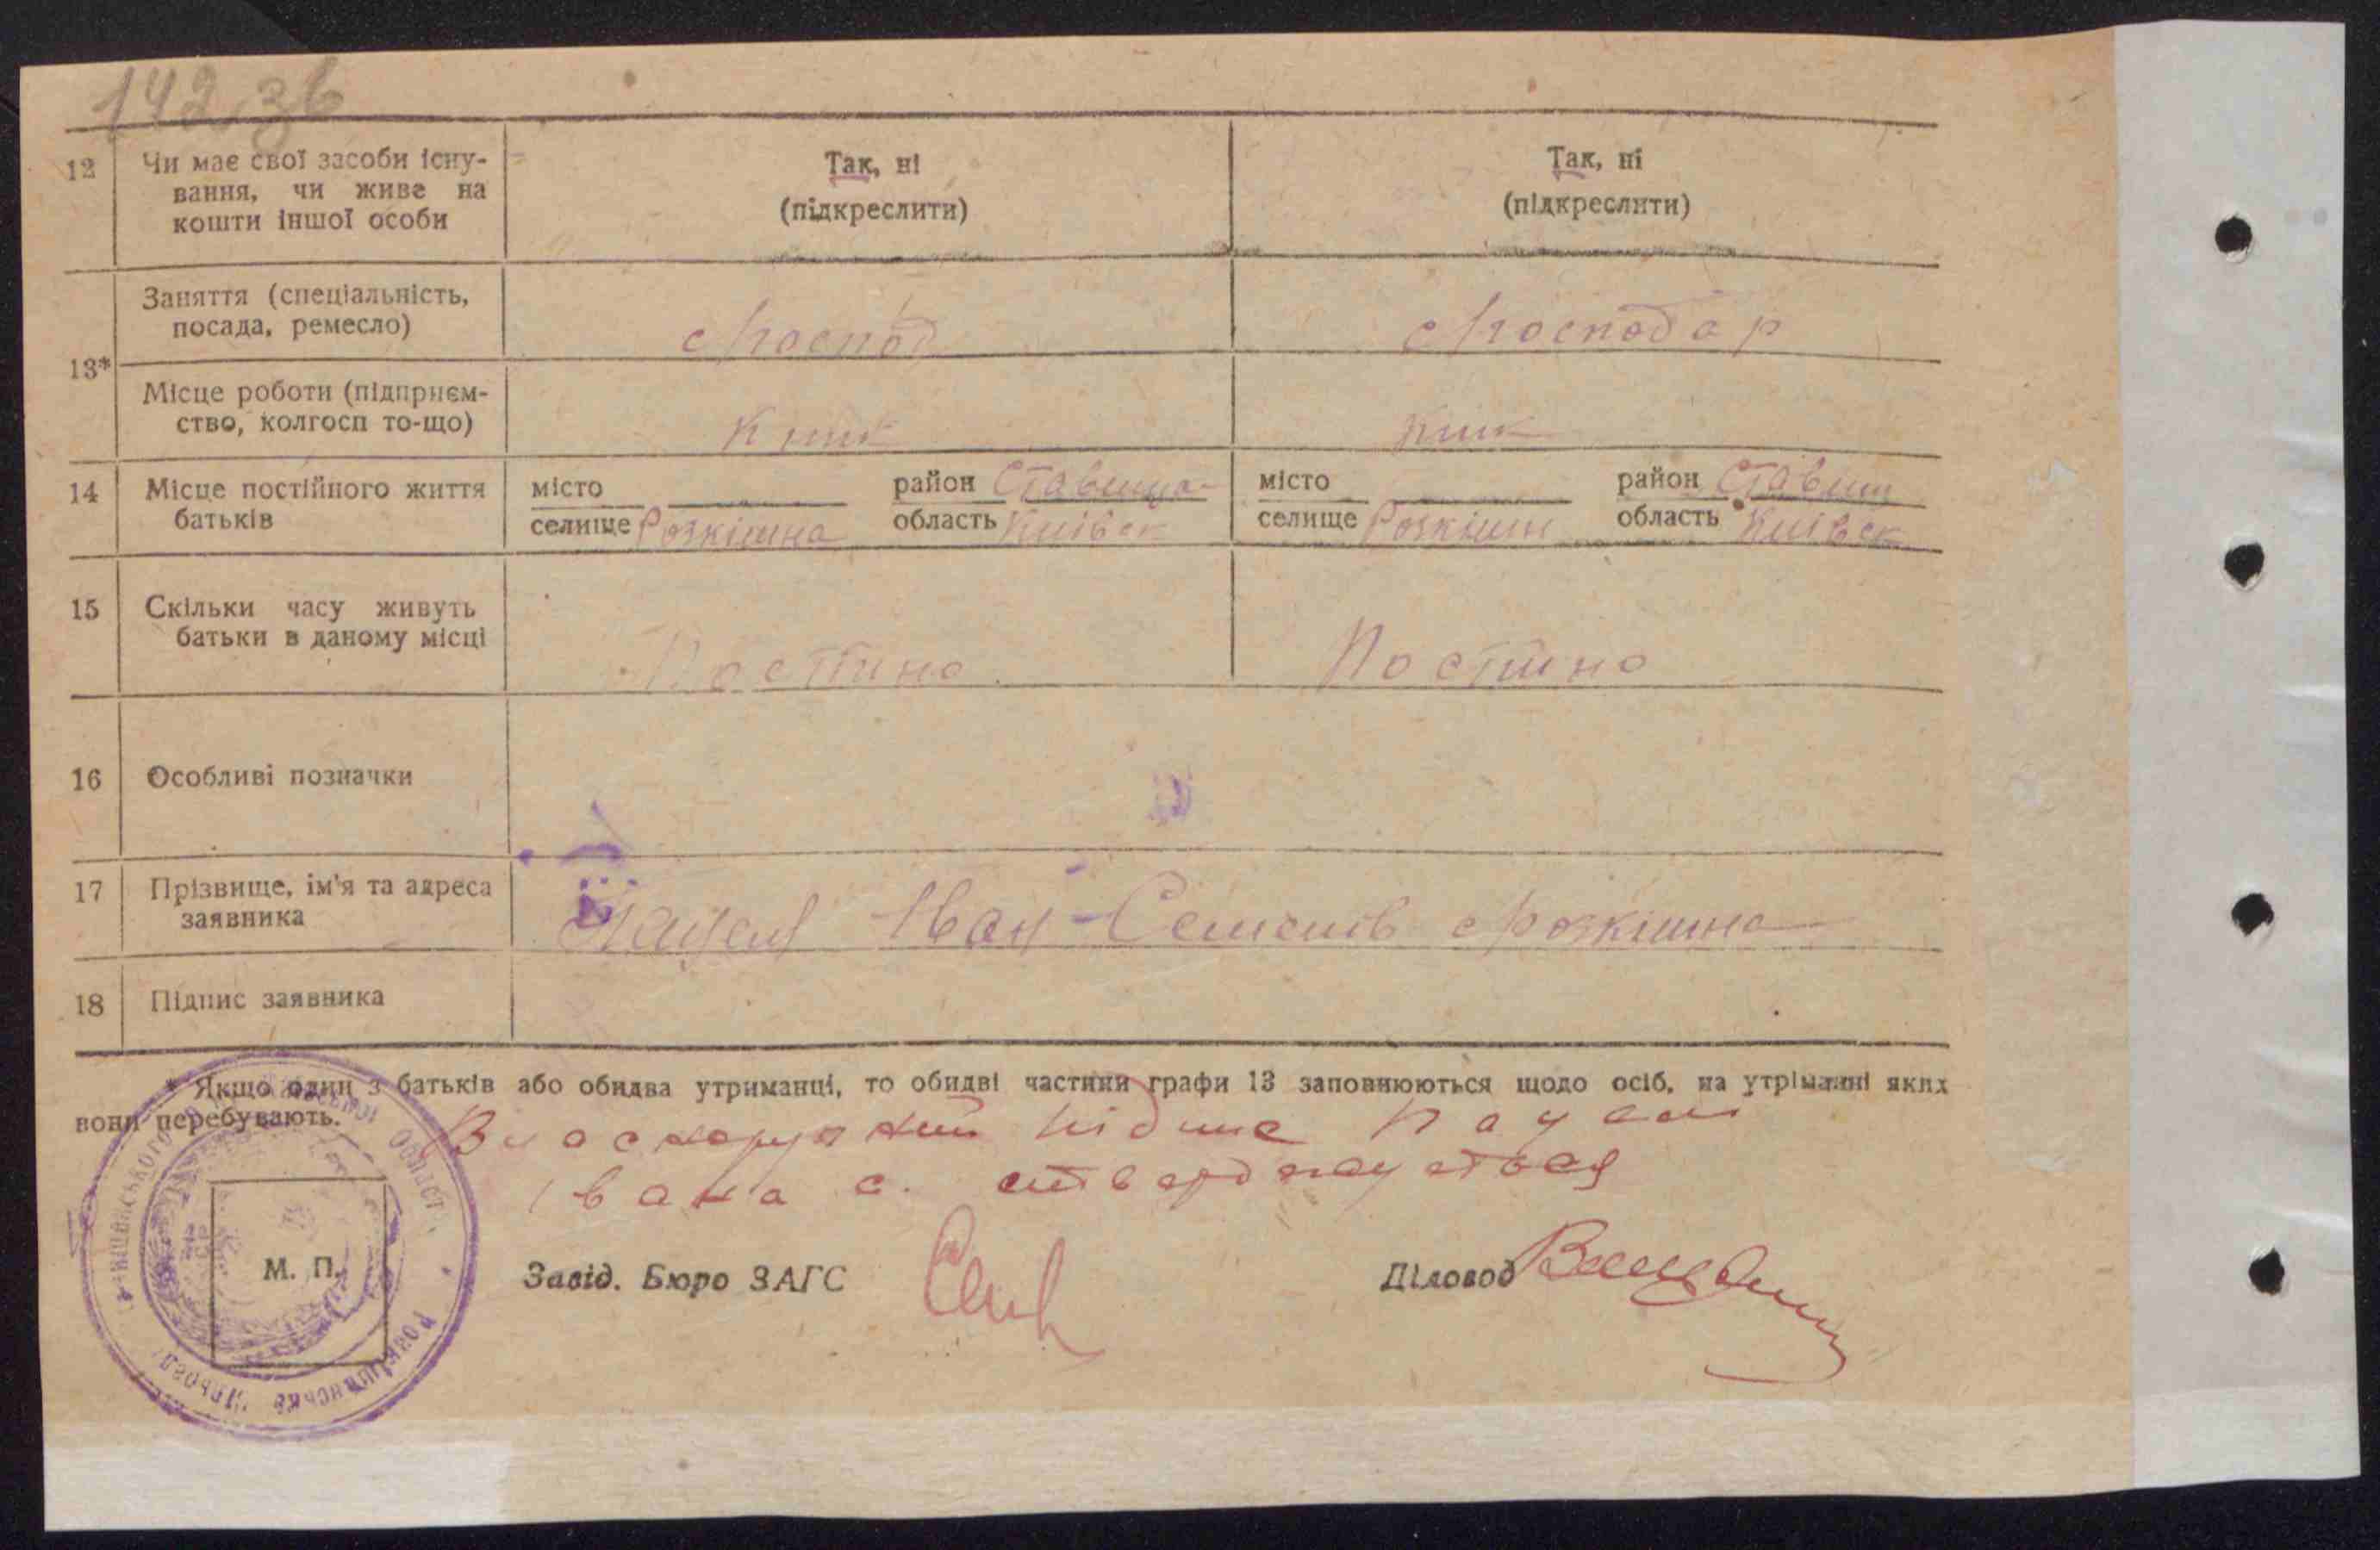 142зв
12 Чи має свої засоби існу-
вання, чи живе на
кошти іншої особи
Так, ні
(підкреслити)
Так, ні
(підкреслити)
13*
Заняття (спеціальність,
посада, ремесло)
Господар
Місце роботи (підприєм-
ство, колгосп то-що)
14 Місце постійного життя
батьків
місто
район
селище Розкішна
область Київск
місто
район Ставищ
селище Розкішн
область Київск
15 Скільки часу живуть
батьки в даному місці
Постино
Постино
16 Особливі позначки
17 Прізвище, ім'я та адреса
заявника
Іван Розкішна
18 Підпис заявника
* Якщо один з батьків або обидва утриманці, то обидві частини графи 13 заповнюються щодо осіб, на утріманні яких
вони перебувають.
Івана с. стверджується
М. П.
Завід. Бюро ЗАГС
Діловод